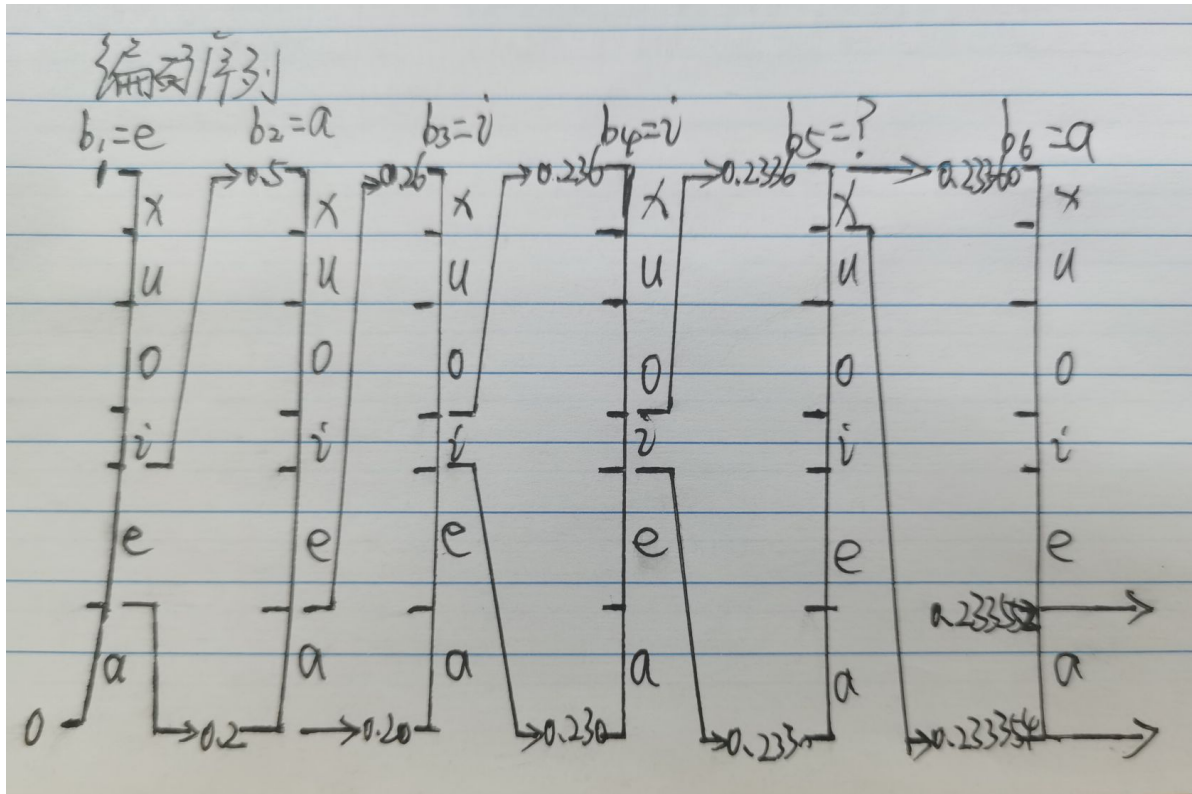 编码序列
b₁=e b₂=a b₃=i b₄=i b₅=? b₆=a
1 0.5 0.26 0.236 0.2336 0.23360
x x x x x x
u u u u u u
o o o o o o
i i i i i i
e e e e e e
a a a a a a
0 0.2 0.20 0.230 0.233 0.233354